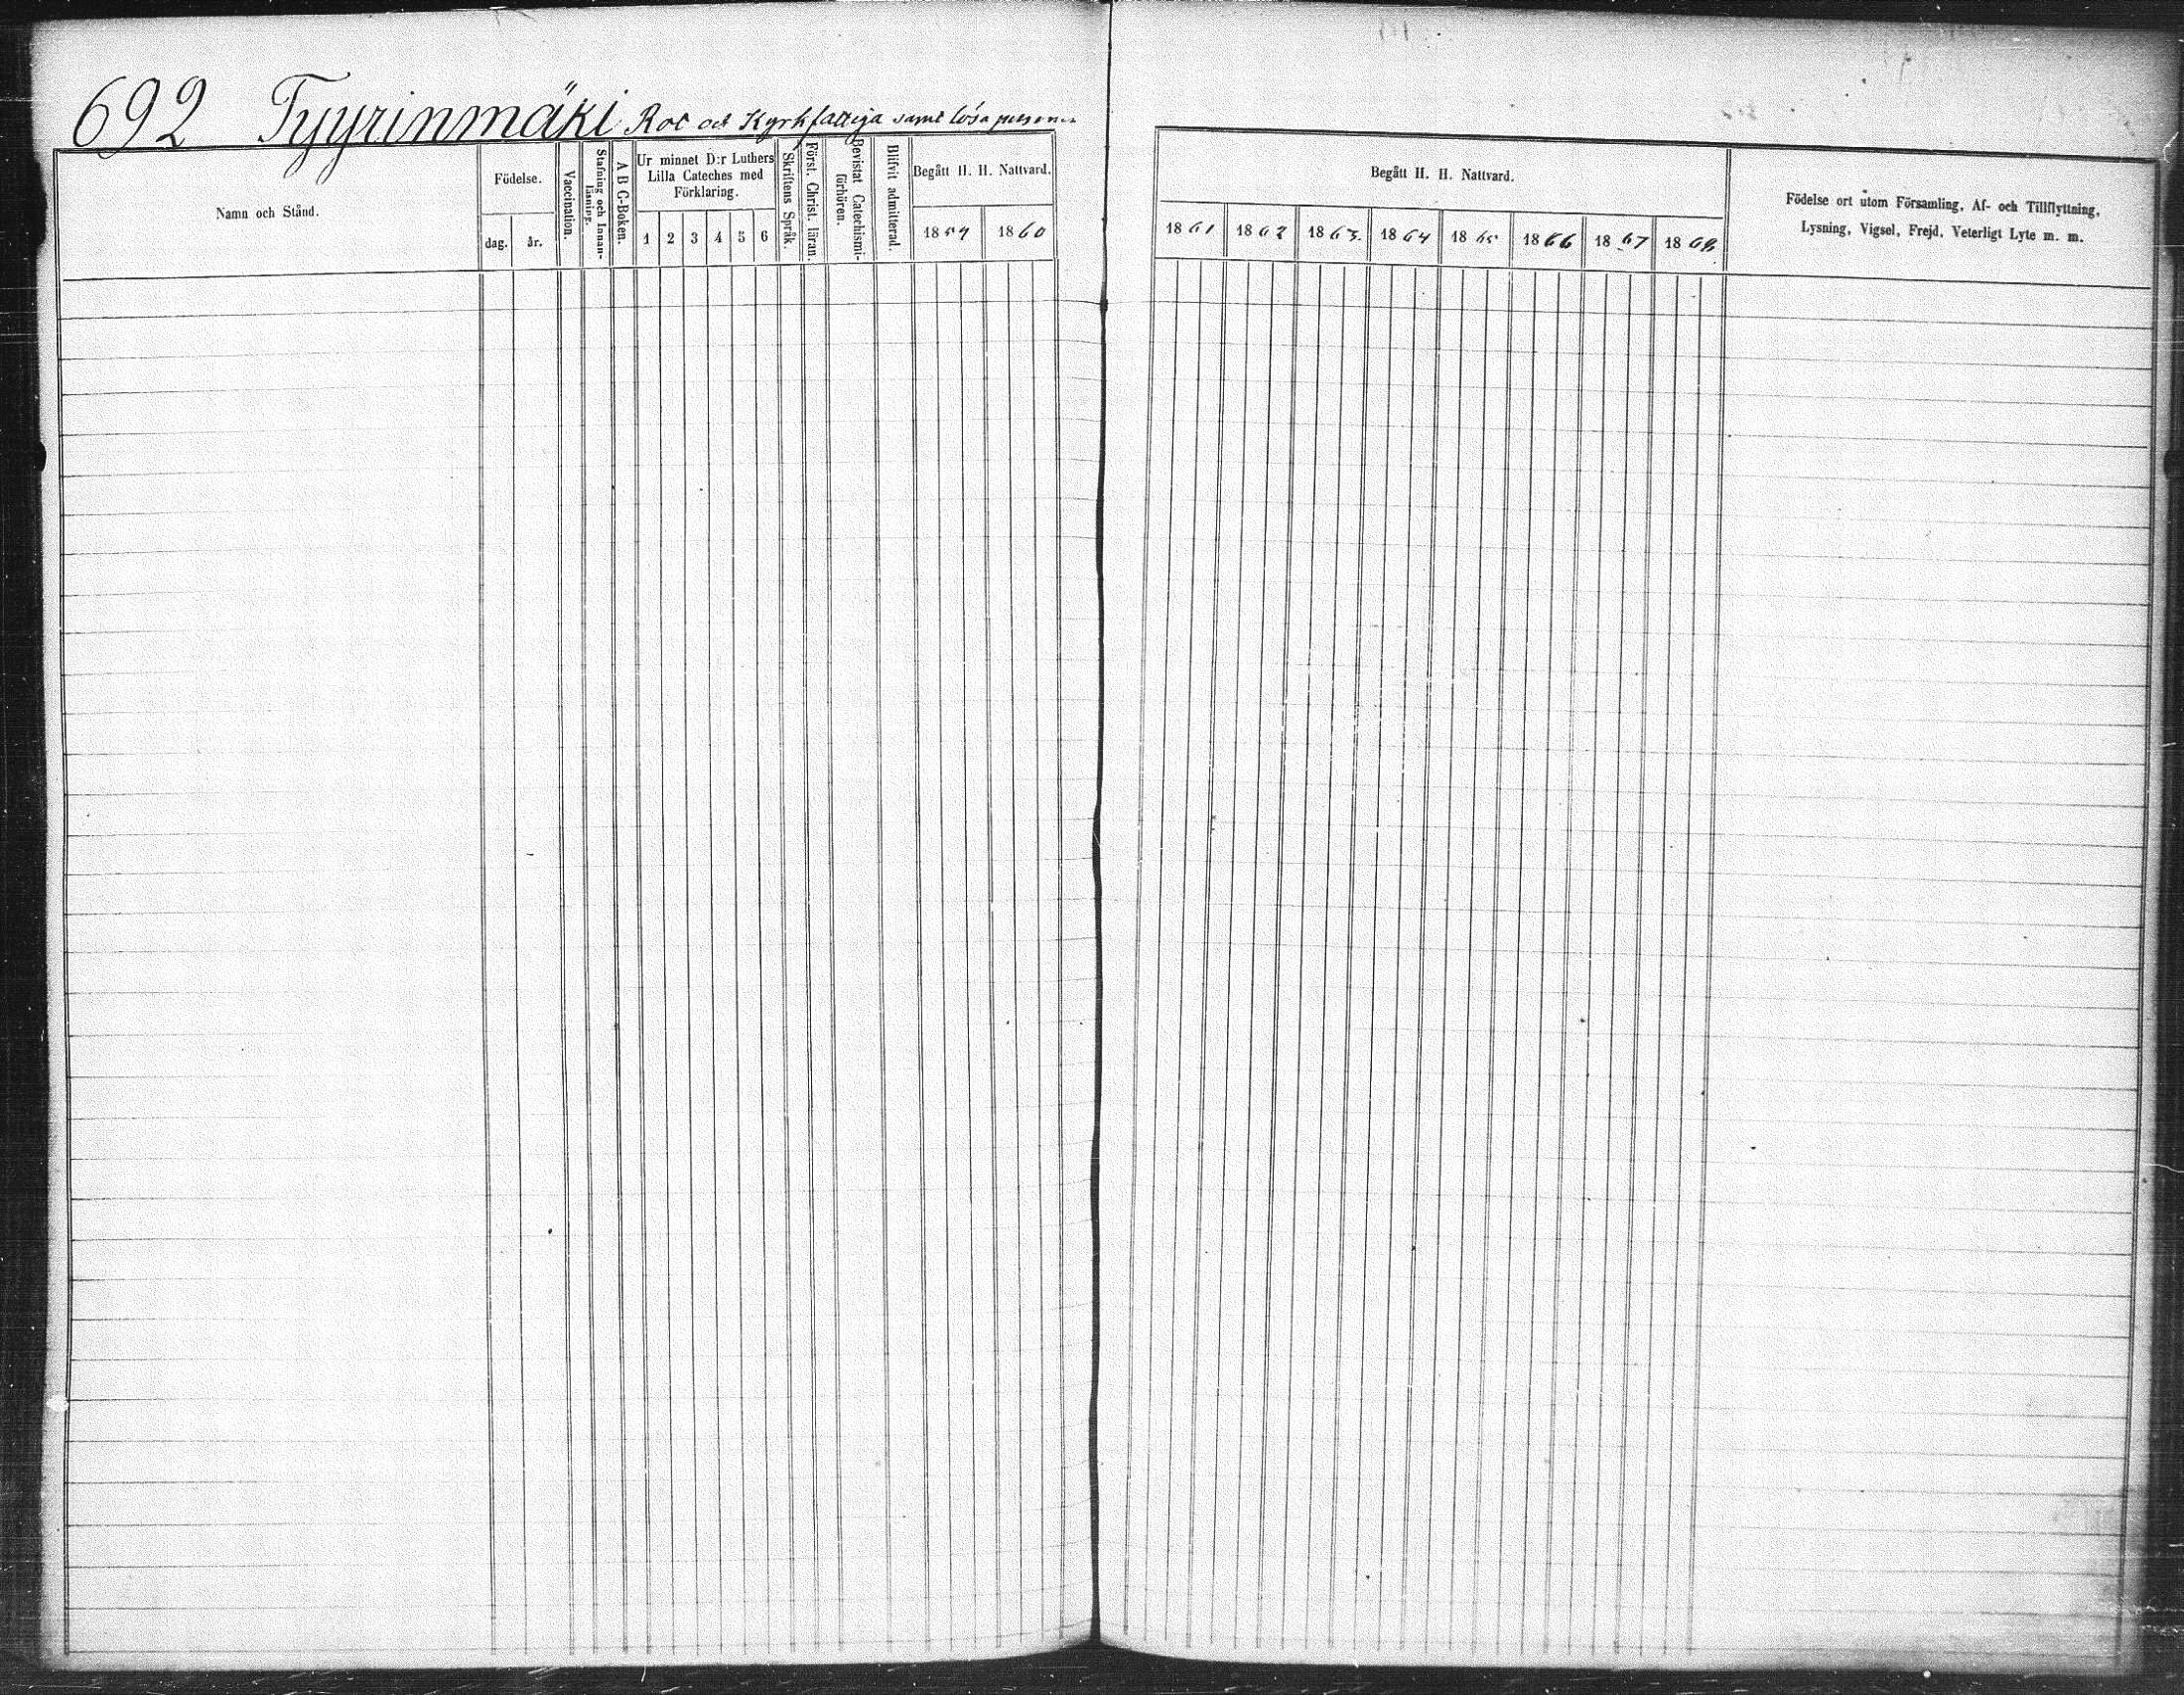 692 Tyyrinmäki Rot och Kyrkfattiga samt lösa personer
Namn och Stånd.
Födelse.
dag. år.
Vaccination.
Stafning och Innan-
läsning.
A B C-Boken.
Ur minnet D:r Luthers
Lilla Cateches med
Förklaring.
1 2 3 4 5 6
Skriftens Språk.
Först. Christ. läran.
Bevistat Catechismi-
förhören.
Blifvit admitterad.
Begått H. H. Nattvard.
1859 1860
Begått H. H. Nattvard.
1861 1862 1863. 1864 1865 1866 1867 1868
Födelse ort utom Församling, Af- och Tillflyttning,
Lysning, Vigsel, Frejd, Veterligt Lyte m. m.